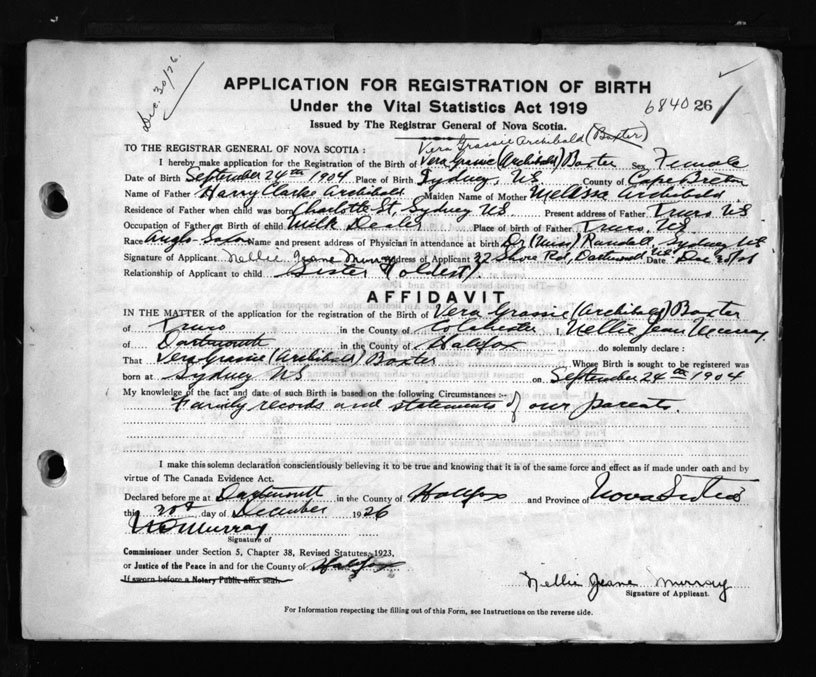 Dec. 30/26.
APPLICATION FOR REGISTRATION OF BIRTH
Under the Vital Statistics Act 1919
684026
Issued by The Registrar General of Nova Scotia.
Vera Grassie Archibald (Baxter)
TO THE REGISTRAR GENERAL OF NOVA SCOTIA :
I hereby make application for the Registration of the Birth of Vera Grassie (Archibald) Baxter Sex Female
Date of Birth September 24th 1904 Place of Birth Sydney, NS County of Cape Breton
Name of Father Harry Clarke Archibald Maiden Name of Mother Archibald
Residence of Father when child was born Charlotte St, Sydney NS Present address of Father Truro NS
Occupation of Father at Birth of child Milk Dealer Place of birth of Father Truro, NS
Race Anglo-Saxon Name and present address of Physician in attendance at birth Dr (Miss) Randall, Sydney NS
Signature of Applicant Nellie Jeane Murray Address of Applicant 32 Shore Rd, Dartmouth NS Date Dec 20/26
Relationship of Applicant to child Sister (oldest)
AFFIDAVIT
IN THE MATTER of the application for the registration of the Birth of Vera Grassie (Archibald) Baxter
of Truro in the County of Colchester I, Nellie Jean Murray
of Dartmouth in the County of Halifax do solemnly declare :
That Vera Grassie (Archibald) Baxter Whose Birth is sought to be registered was
born at Sydney NS on September 24th 1904
My knowledge of the fact and date of such Birth is based on the following Circumstances :-
Family records and statements of our parents.
I make this solemn declaration conscientiously believing it to be true and knowing that it is of the same force and effect as if made under oath and by
virtue of The Canada Evidence Act.
Declared before me at Dartmouth in the County of Halifax and Province of Nova Scotia
this day of December 1926
Murray
Signature of
Commissioner under Section 5, Chapter 38, Revised Statutes, 1923,
or Justice of the Peace in and for the County of Halifax
If sworn before a Notary Public affix seal.
Nellie Jeane Murray
Signature of Applicant.
For Information respecting the filling out of this Form, see Instructions on the reverse side.